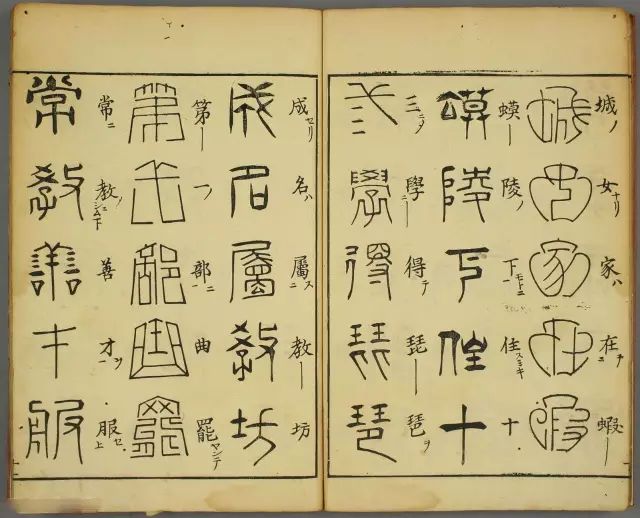 城ノ女ナリ家ハ在蝦
城女家在蝦
蟆陵ノ下モトニ住スミキ十
蟆陵下住十
三學得テ琵琶ヲ
三學得琵琶
成セリ名ハ屬ス教坊
成名屬教坊
第一部ニ曲罷
第一部曲罷
常ニ教善才服セ
常教善才服